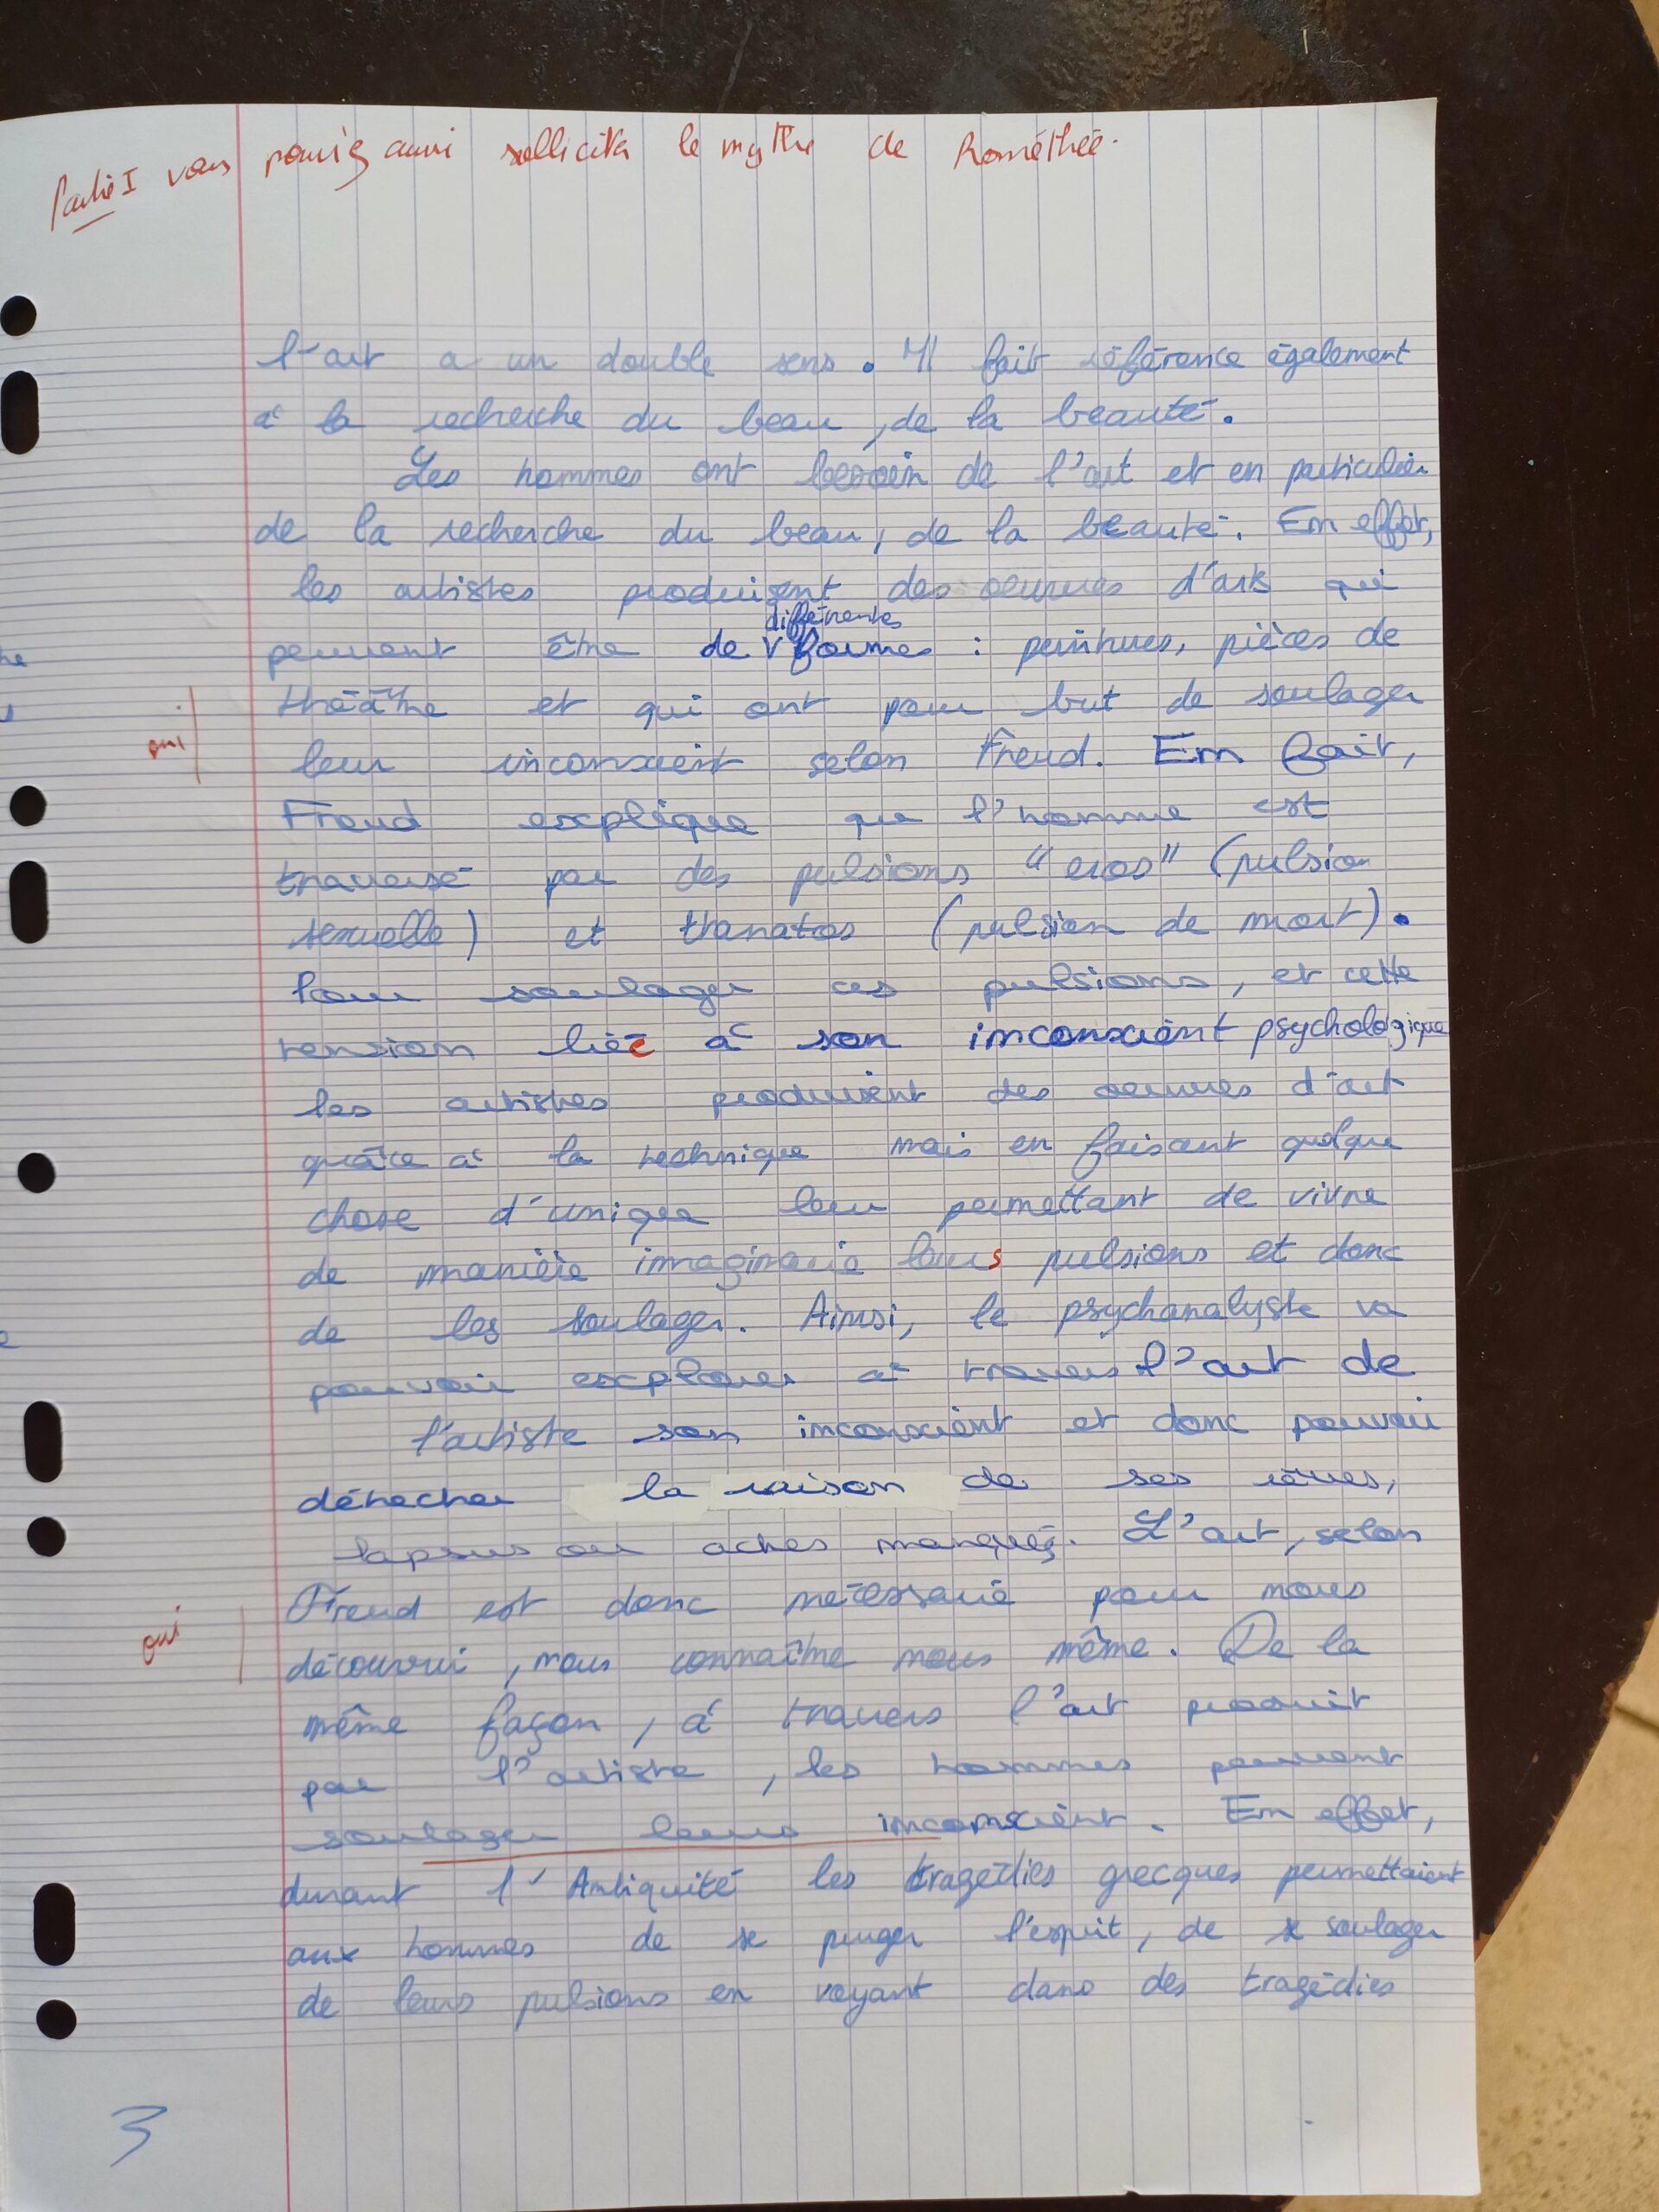 Partie I vous pouviez aussi solliciter le mythe de Prométhée.
l'art a un double sens. Il fait référence également
à la recherche du beau, de la beauté.
Les hommes ont besoin de l'art et en particulier
de la recherche du beau, de la beauté. En effet,
les artistes produisent des oeuvres d'arts qui
différentes
peuvent être de V formes : peintures, pièces de
théâtre et qui ont pour but de soulager
oui
leur inconscient selon Freud. En fait,
Freud explique que l'homme est
traversé par des pulsions "eros" (pulsion
sexuelle) et thanatos (pulsion de mort).
Pour soulager ces pulsions, et cette
tension liée à son inconscient psychologique
les artistes produisent des oeuvres d'art
grâce à la technique mais en faisant quelque
chose d'unique leur permettant de vivre
de manière imaginaire leurs pulsions et donc
de les soulager. Ainsi, le psychanalyste va
pouvoir explorer à travers l'art de
l'artiste son inconscient et donc pouvoir
détacher la raison de ses rêves,
lapsus ou actes manqués. L'art, selon
Freud est donc nécessaire pour nous
oui
découvrir, nous connaître nous même. De la
même façon, à travers l'art produit
par l'artiste, les hommes peuvent
soulager leurs inconscient. En effet,
durant l'Antiquité les tragédies grecques permettaient
aux hommes de se purger l'esprit, de se soulager
de leurs pulsions en voyant dans des tragédies
3